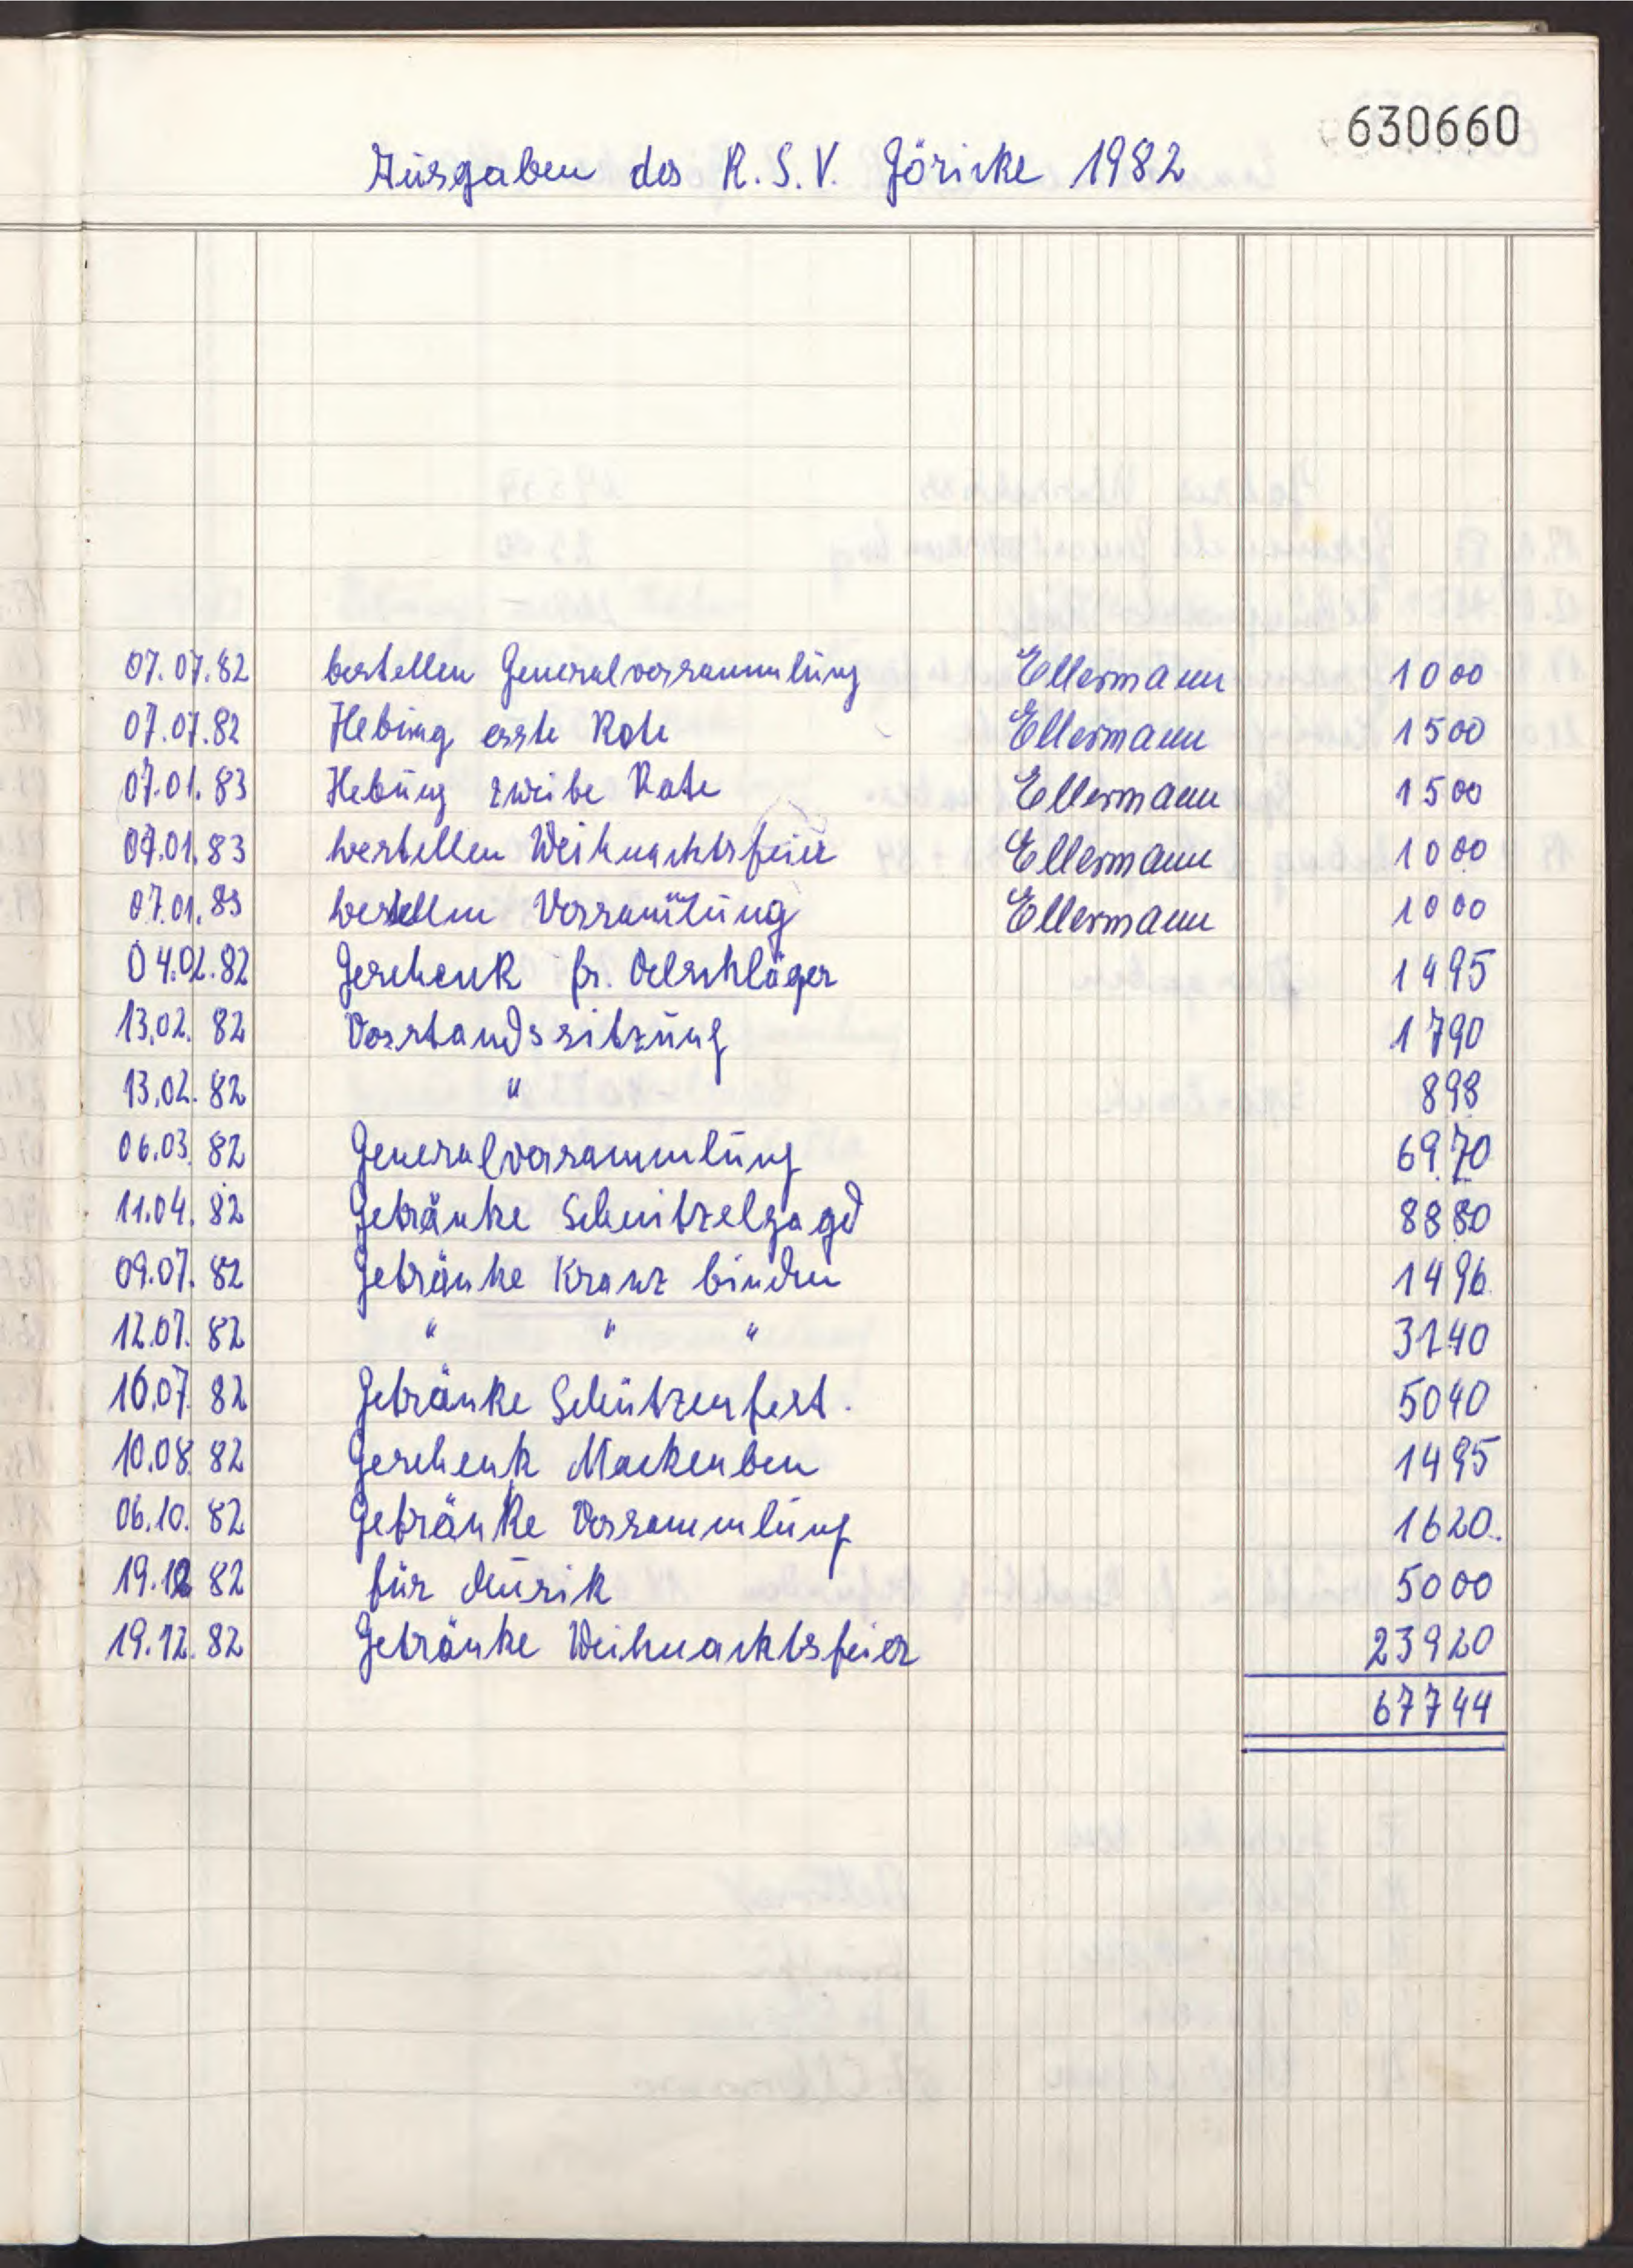 630660
Ausgaben des R.S.V. Göricke 1982
07.07.82 bestellen Generalversammlung Ellermann 1000
07.07.82 Hebung erste Rate Ellermann 1500
07.01.83 Hebung zweite Rate Ellermann 1500
07.01.83 bestellen Weihnachtsfeier Ellermann 1000
07.01.83 bestellen Versammlung Ellermann 1000
04.02.82 Geschenk fr. Oelschläger 1495
13.02.82 Vorstandssitzung 1790
13.02.82 " 898
06.03.82 Generalversammlung 6970
11.04.82 Getränke Schnitzeljagd 8880
09.07.82 Getränke Kranz binden 1496
12.07.82 " " " 3140
16.07.82 Getränke Schützenfest. 5040
10.08.82 Geschenk 1495
06.10.82 Getränke Versammlung 1620.
19.12.82 für Musik 5000
19.12.82 Getränke Weihnachtsfeier 23920
67744